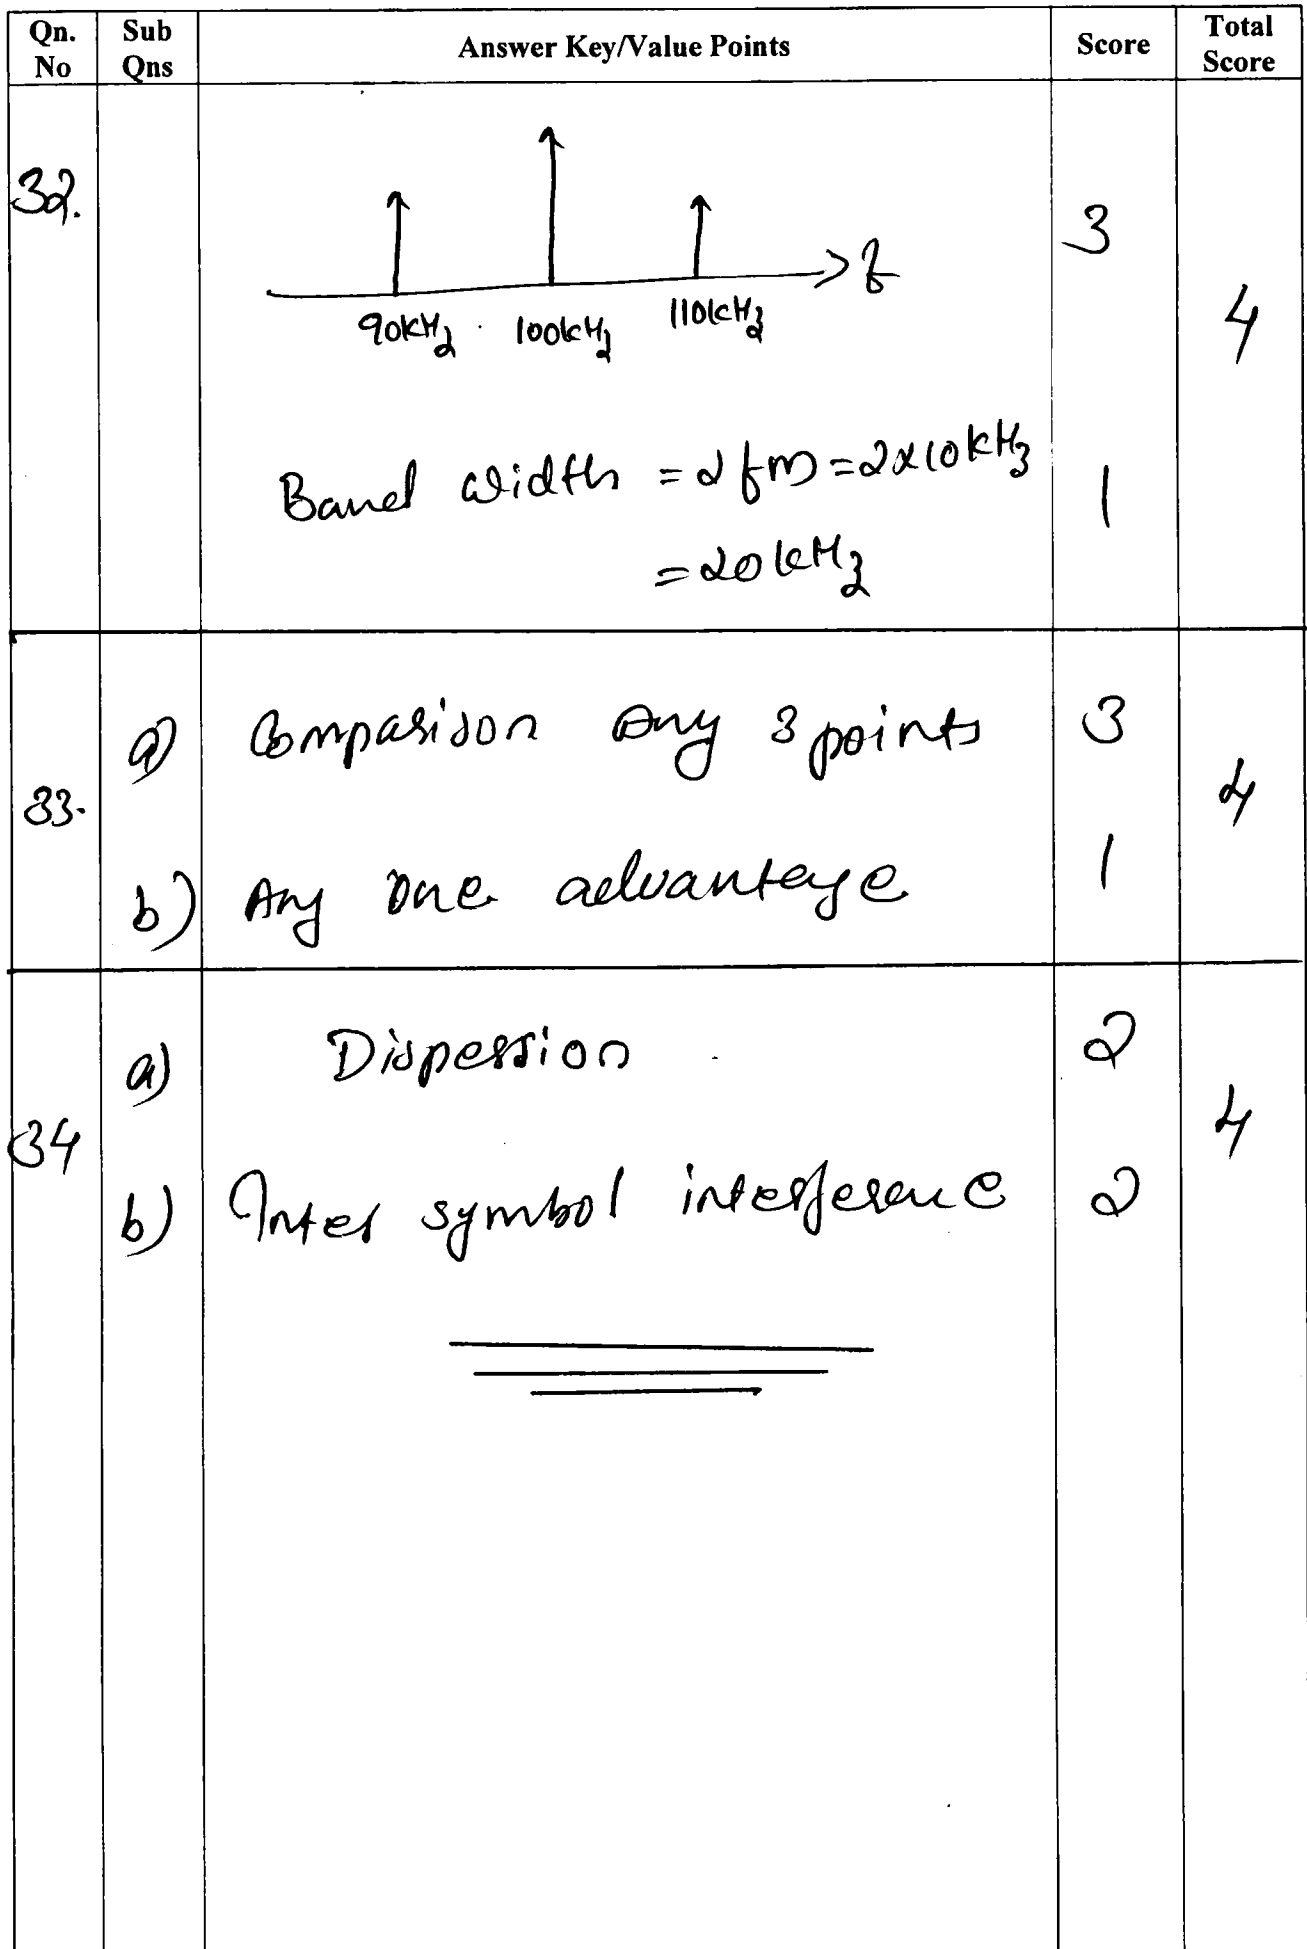 Qn. No Sub Qns Answer Key/Value Points Score Total Score
32.
3
4
f
90kHz 100kHz 110kHz
Band width = 2fm = 2x10kHz
1
= 20kHz
33.
a) Comparison any 3 points 3
4
b) Any one advantage 1
34
a) Dispersion 2
4
b) Inter symbol interference 2